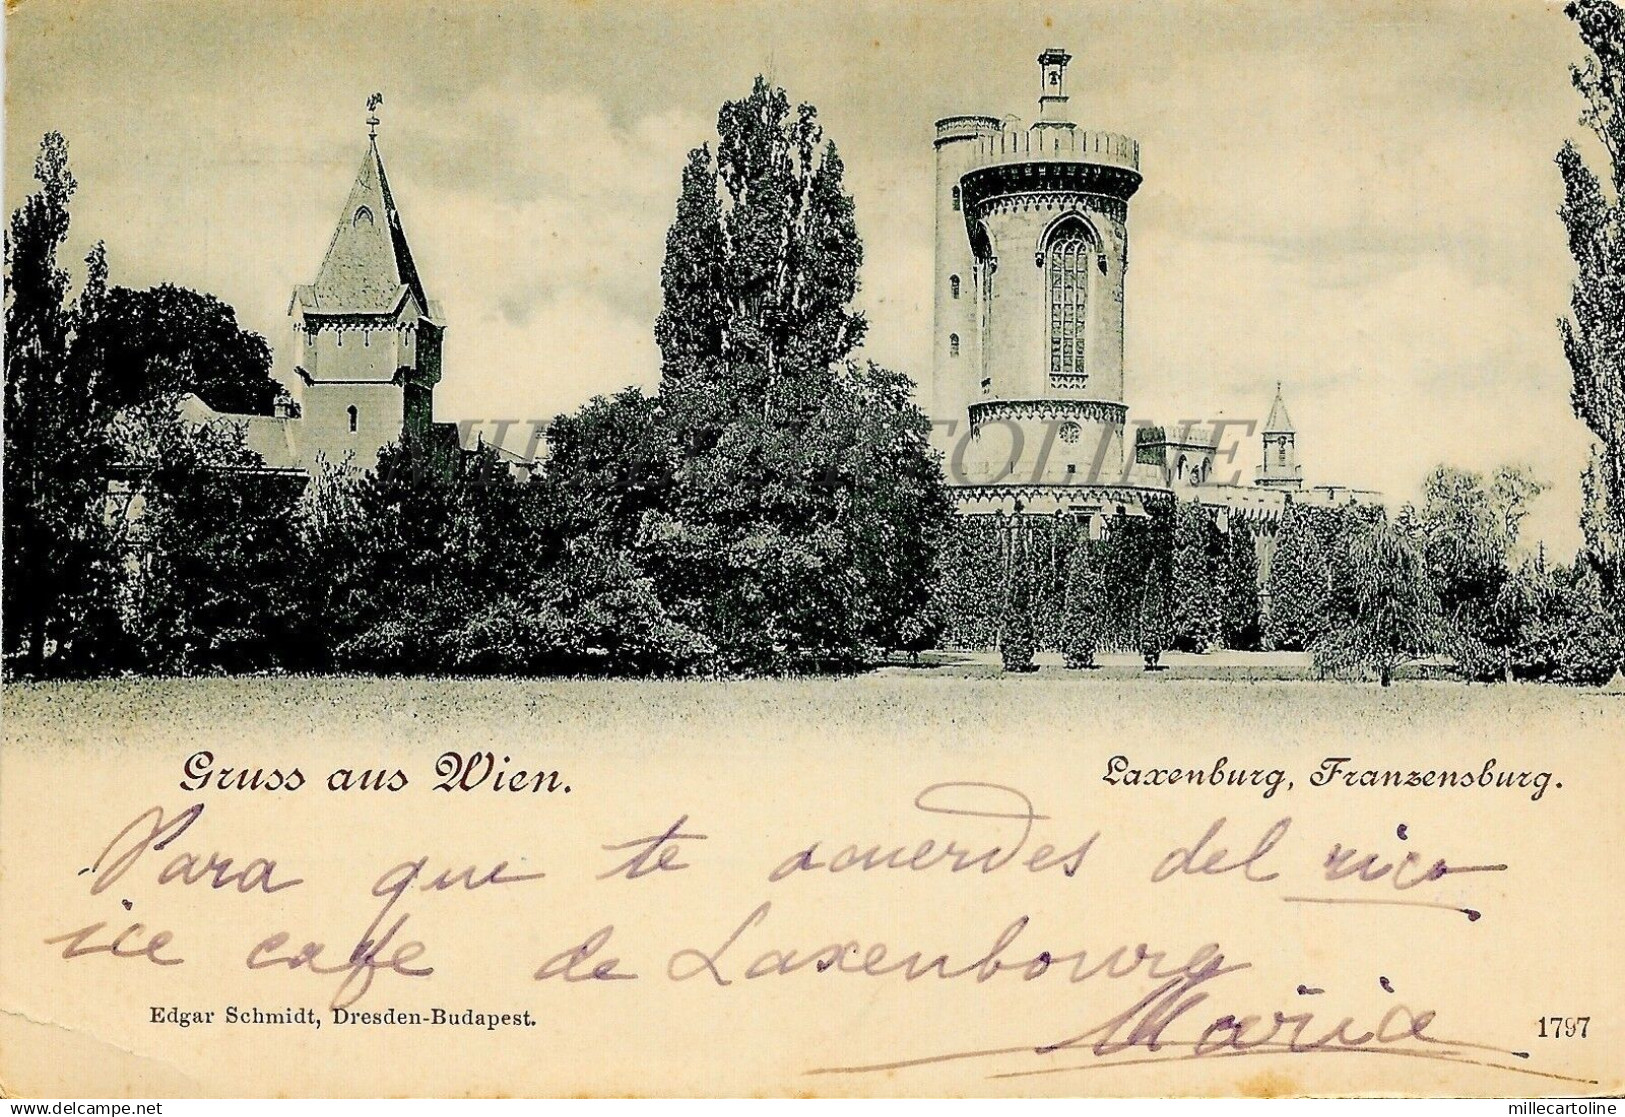 MILLECARTOLINE
Gruss aus Wien.
Laxenburg, Franzensburg.
Para que te acuerdes del rico
ice cafe de Laxenbourg
Maria
Edgar Schmidt, Dresden-Budapest.
1797
millecartoline